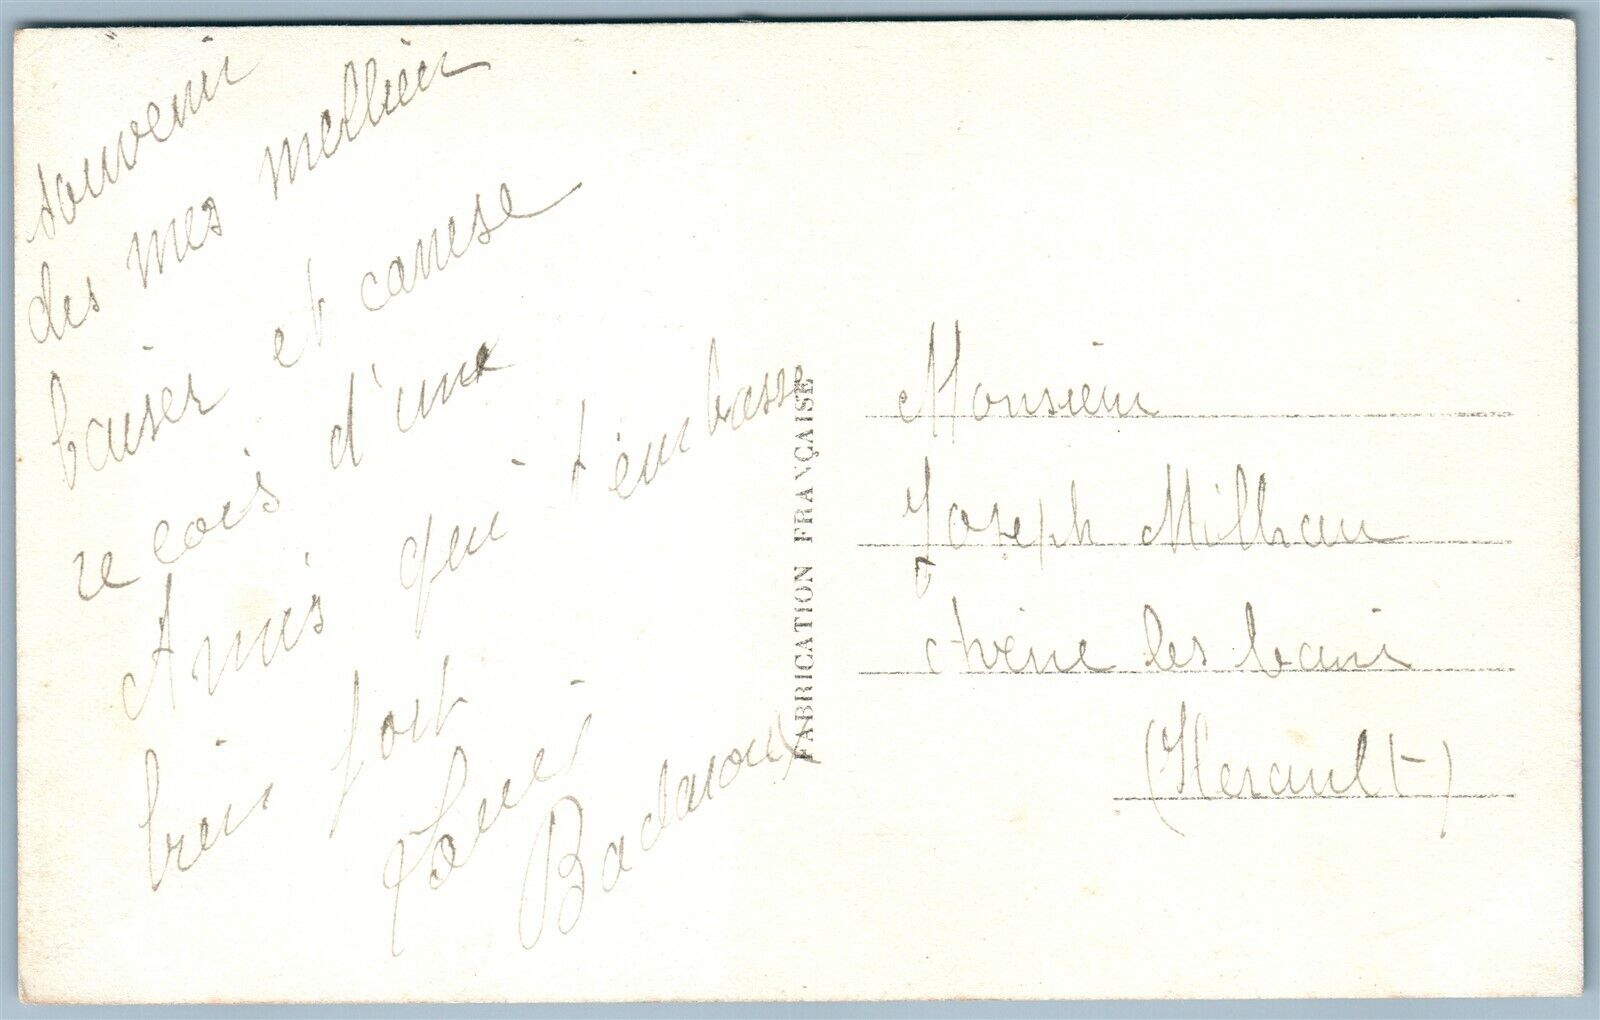 souvenir
des mes mellieur
baiser et caresse
recois d'une
Amis qui t'embasse
bien fort
Louis
Badaroux
FABRICATION FRANÇAISE
Monsieur
Joseph Milhau
les bains
(Herault)